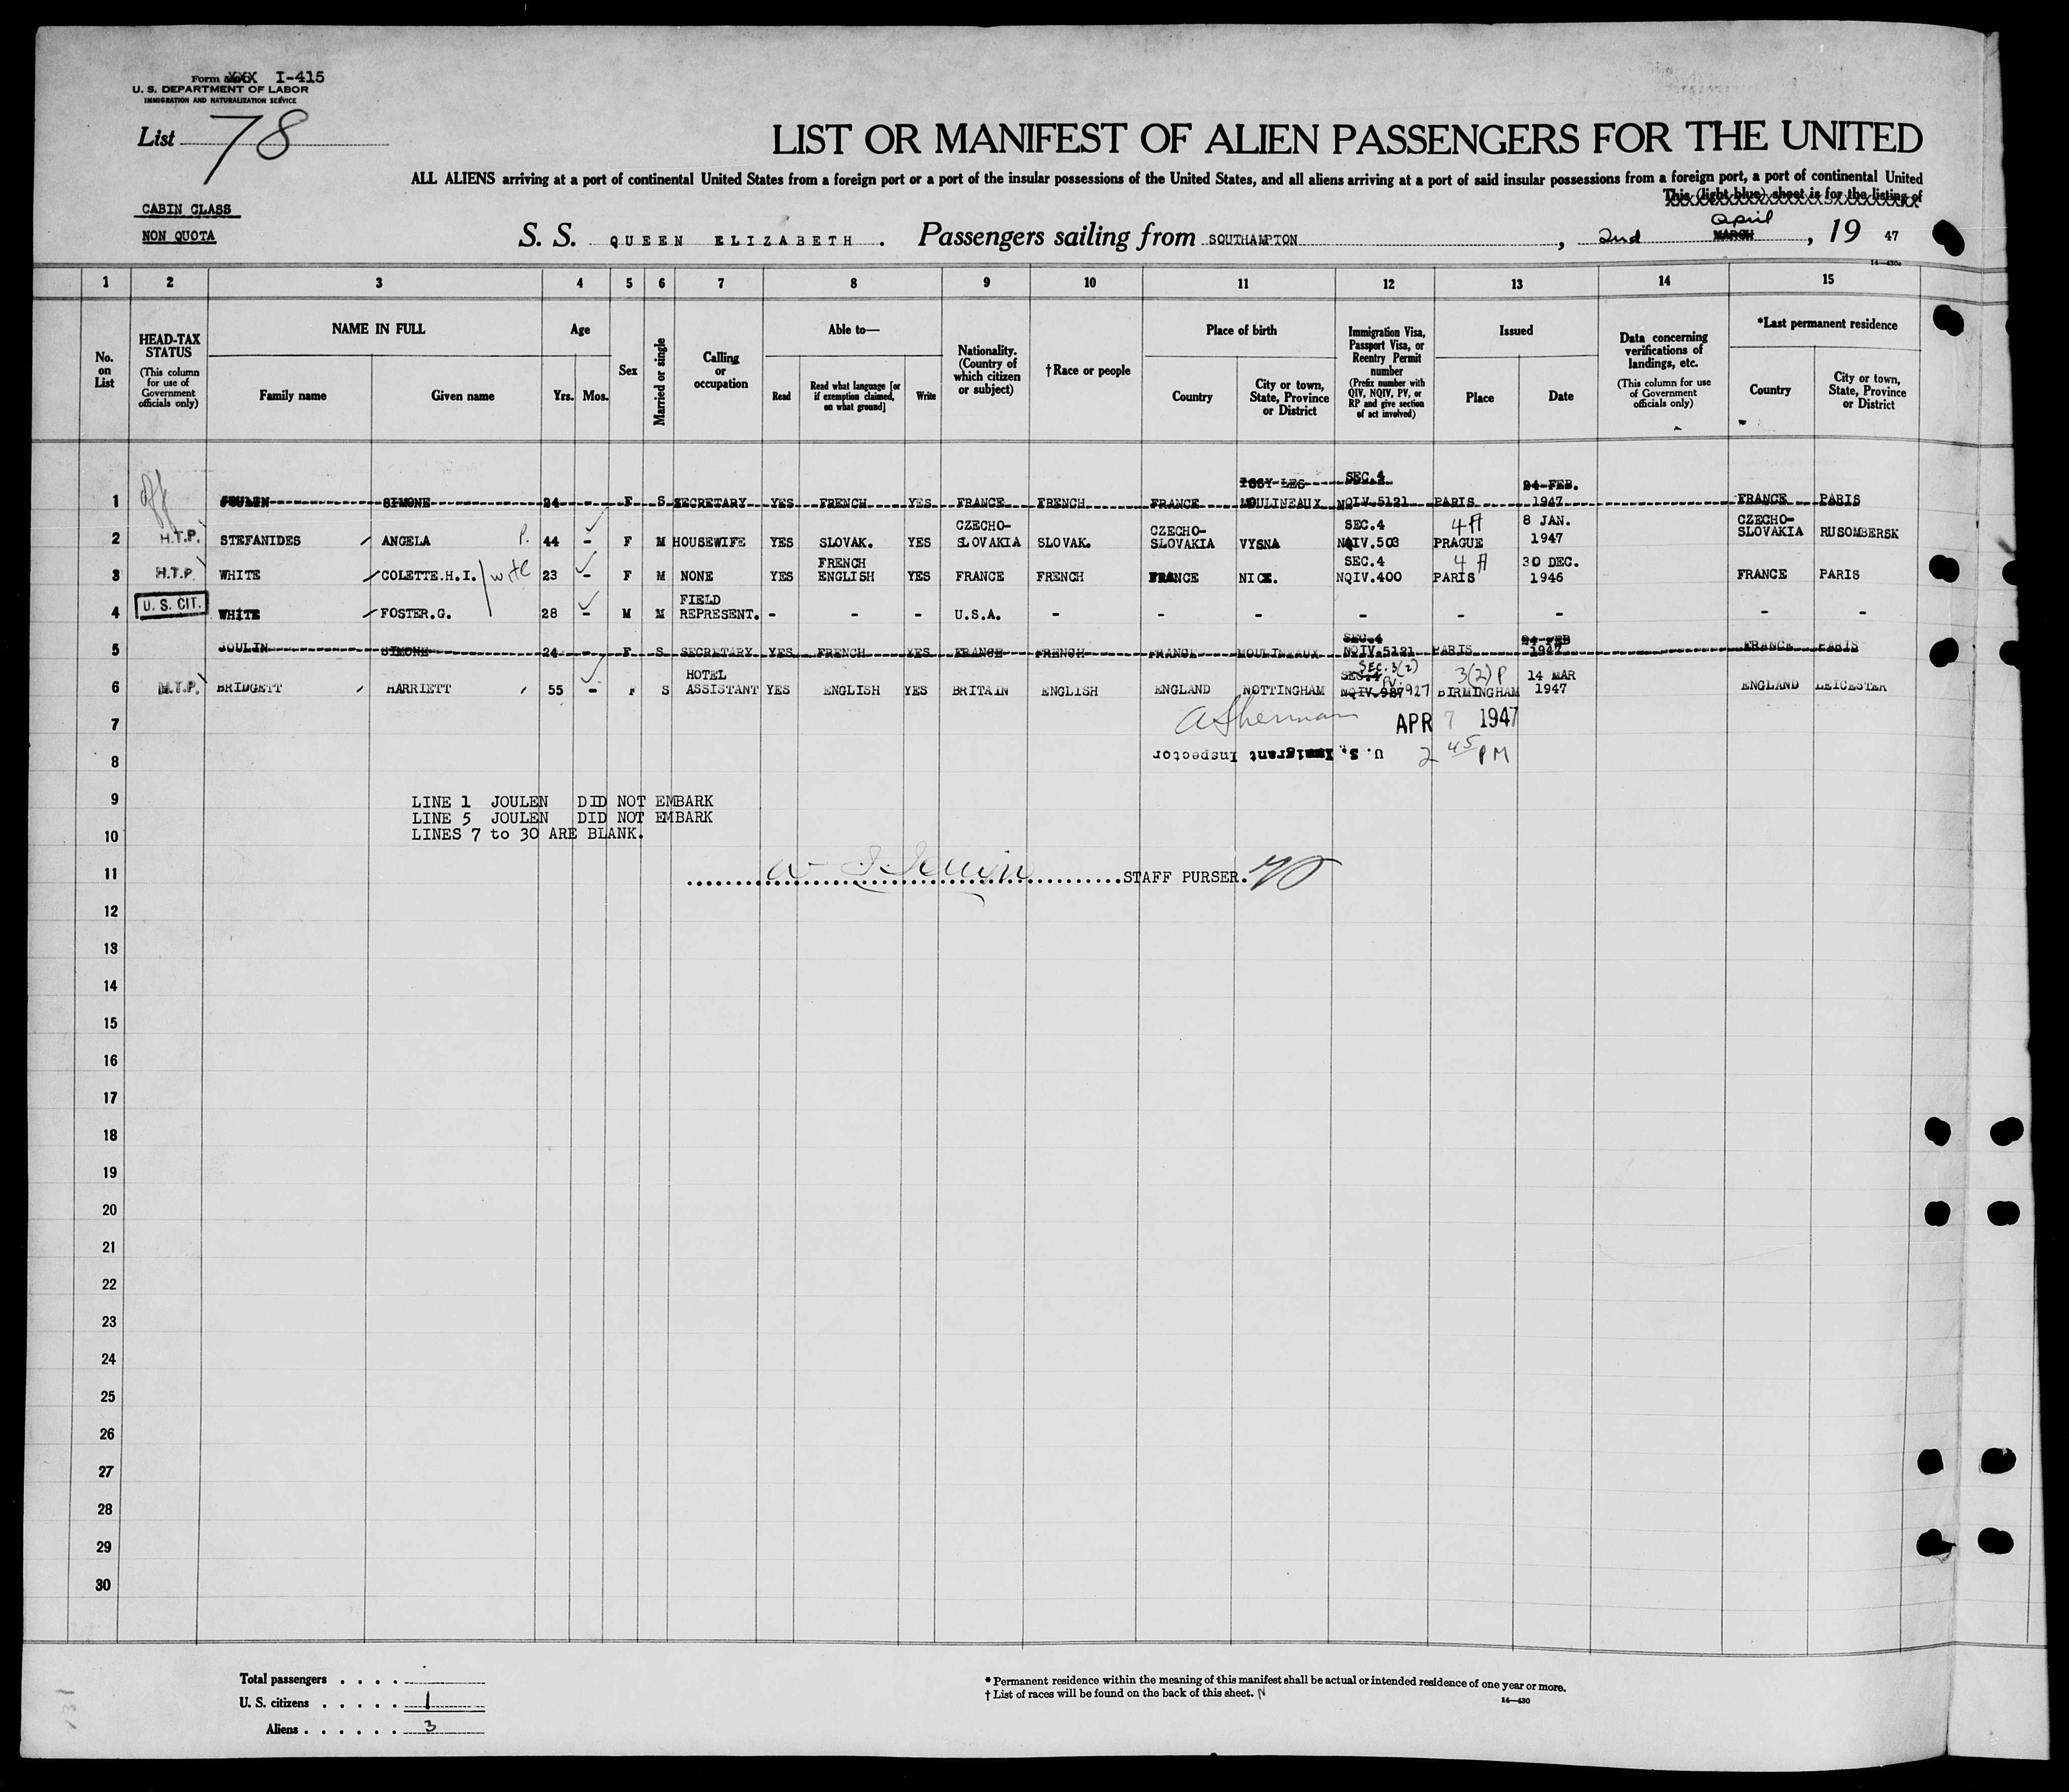 Form XXX I-415
U. S. DEPARTMENT OF LABOR
IMMIGRATION AND NATURALIZATION SERVICE
List 78
LIST OR MANIFEST OF ALIEN PASSENGERS FOR THE UNITED
ALL ALIENS arriving at a port of continental United States from a foreign port or a port of the insular possessions of the United States, and all aliens arriving at a port of said insular possessions from a foreign port, a port of continental United
This (light blue) sheet is for the listing of
CABIN CLASS
NON QUOTA
S. S. QUEEN ELIZABETH . Passengers sailing from SOUTHAMPTON , 2nd MARCH April , 19 47
14—430a
1 2 3 4 5 6 7 8 9 10 11 12 13 14 15
No. on List
HEAD-TAX STATUS (This column for use of Government officials only)
NAME IN FULL
Family name Given name
Age
Yrs. Mos.
Sex
Married or single
Calling or occupation
Able to—
Read Read what language [or if exemption claimed, on what ground] Write
Nationality. (Country of which citizen or subject)
†Race or people
Place of birth
Country City or town, State, Province or District
Immigration Visa, Passport Visa, or Reentry Permit number (Prefix number with QIV, NQIV, PV, or RP and give section of act involved)
Issued
Place Date
Data concerning verifications of landings, etc. (This column for use of Government officials only)
*Last permanent residence
Country City or town, State, Province or District
1 off JOULIN SIMONE 24 - F S SECRETARY YES FRENCH YES FRANCE FRENCH FRANCE ISSY-LES MOULINEAUX SEC.4 NQIV.5121 PARIS 24-FEB. 1947 FRANCE PARIS
2 H.T.P. STEFANIDES ANGELA P. 44 - F M HOUSEWIFE YES SLOVAK. YES CZECHO-SLOVAKIA SLOVAK. CZECHO-SLOVAKIA VYSNA SEC.4 NQIV.503 4A PRAGUE 8 JAN. 1947 CZECHO-SLOVAKIA RUSOMBERSK
3 H.T.P. WHITE COLETTE.H.I. wife 23 - F M NONE YES FRENCH ENGLISH YES FRANCE FRENCH FRANCE NICE. SEC.4 NQIV.400 4A PARIS 30 DEC. 1946 FRANCE PARIS
4 U. S. CIT. WHITE FOSTER.G. 28 - M M FIELD REPRESENT. - - - U.S.A. - - - - - - - -
5 JOULIN SIMONE 24 - F S SECRETARY YES FRENCH YES FRANCE FRENCH FRANCE MOULINEAUX SEC.4 NQIV.5121 PARIS 24-FEB 1947 FRANCE PARIS
6 H.T.P. BRIDGETT HARRIETT 55 - F S HOTEL ASSISTANT YES ENGLISH YES BRITAIN ENGLISH ENGLAND NOTTINGHAM SEC.4 NQIV.927 SEC. 3(2) PV. 927 3(2) P BIRMINGHAM 14 MAR 1947 ENGLAND LEICESTER
7 A Sherman APR 7 1947
8 U. S. Immigrant Inspector 2 45 PM
9 LINE 1 JOULEN DID NOT EMBARK
LINE 5 JOULEN DID NOT EMBARK
10 LINES 7 to 30 ARE BLANK.
11 STAFF PURSER.
12
13
14
15
16
17
18
19
20
21
22
23
24
25
26
27
28
29
30
Total passengers . . . .
U. S. citizens . . . . . 1
Aliens . . . . . . 3
* Permanent residence within the meaning of this manifest shall be actual or intended residence of one year or more.
† List of races will be found on the back of this sheet.
14—430
131